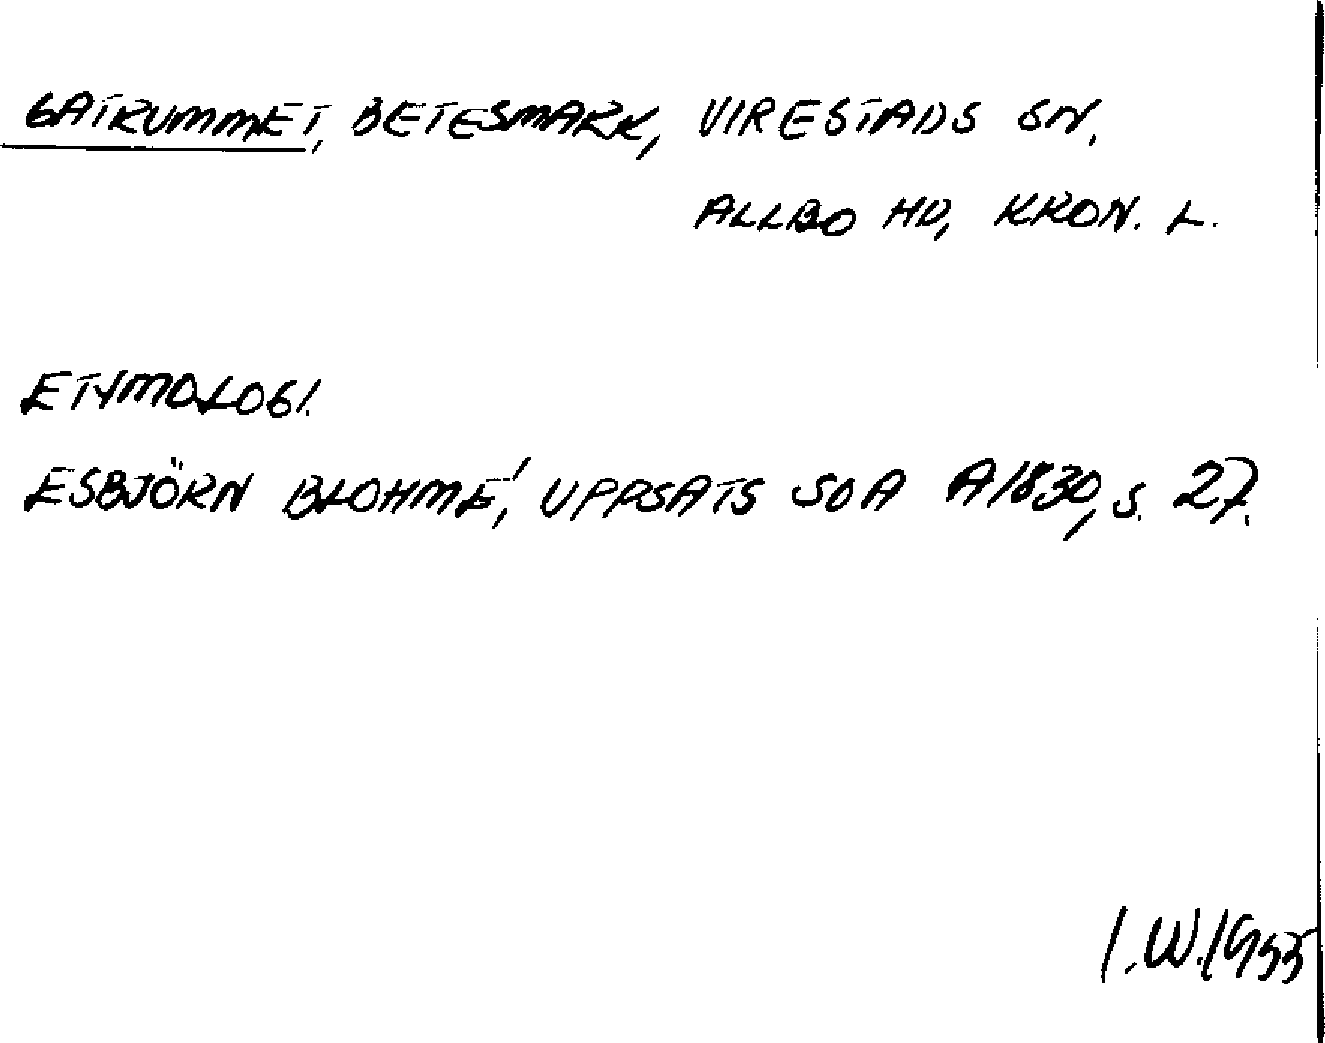 GATRUMMET, BETESMARK, VIRESTADS SN,
ALLBO HD, KRON. L.
ETYMOLOGI.
ESBJÖRN BLOHMÉ, UPPSATS SOA A1830, S. 27.
I.W. 1955